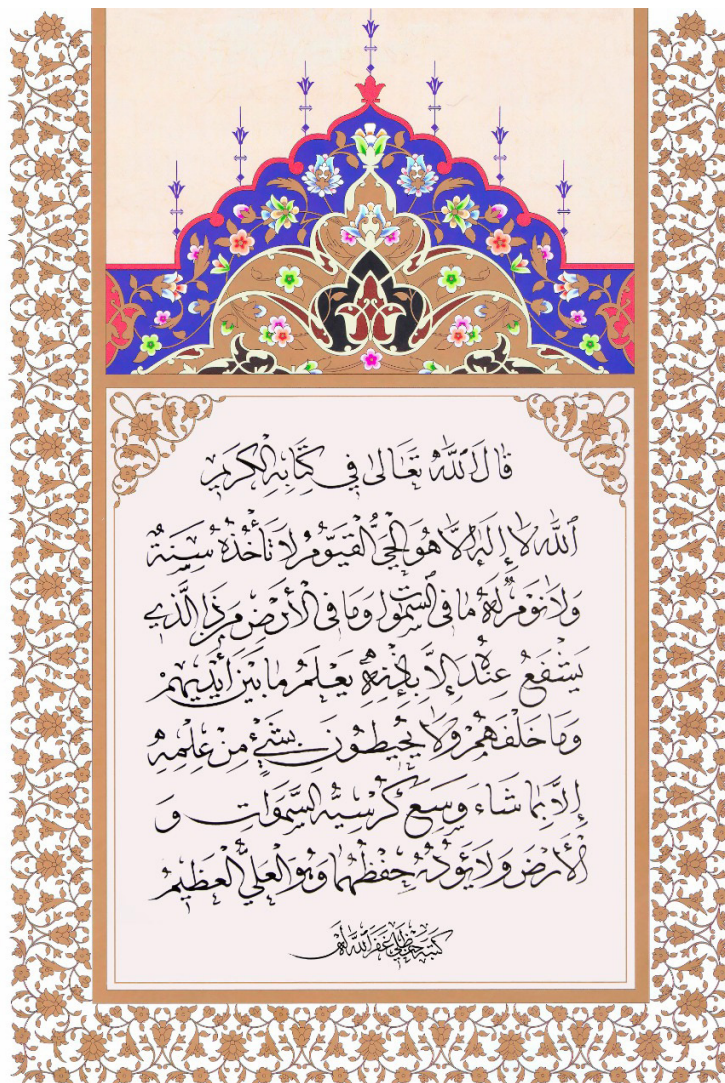 قَالَ اللهُ تَعَالىٰ فِي كِتَابِهِ الْكَرِيمِ
ٱللهُ لَا إِلٰهَ إِلَّا هُوَ الْحَيُّ الْقَيُّومُ لَا تَأْخُذُهُ سِنَةٌ
وَلَا نَوْمٌ لَهُ مَا فِي السَّمٰوَاتِ وَمَا فِي الْأَرْضِ مَنْ ذَا الَّذِي
يَشْفَعُ عِنْدَهُ إِلَّا بِإِذْنِهِ يَعْلَمُ مَا بَيْنَ أَيْدِيهِمْ
وَمَا خَلْفَهُمْ وَلَا يُحِيطُونَ بِشَيْءٍ مِنْ عِلْمِهِ
إِلَّا بِمَا شَاءَ وَسِعَ كُرْسِيُّهُ السَّمَوَاتِ وَ
الْأَرْضَ وَلَا يَؤُدُهُ حِفْظُهُمَا وَهُوَ الْعَلِيُّ الْعَظِيمُ
كتبه غفر الله